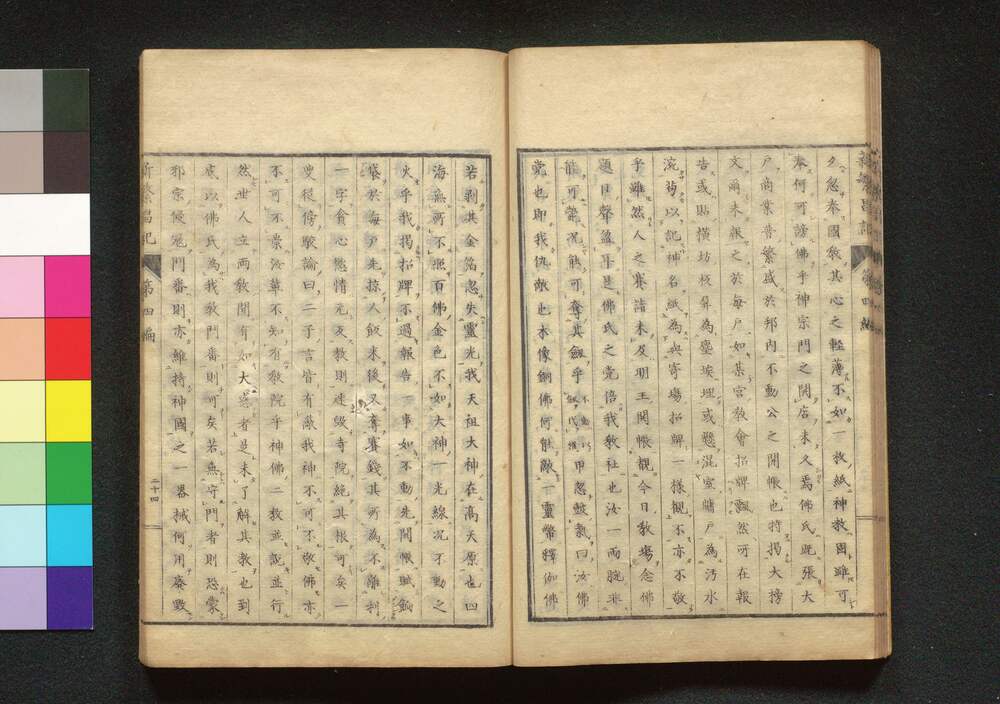 久忽奉國教其心之輕薄不如一枚紙神教固雖可
奉何可謗佛乎神宗門之開店未久焉佛氏既張大
戶商業普繁盛於邦內不動公之開帳也將揭大榜
文爾未報之於每戶如某宮教會招牌飄然可在報
告或貼橫坊板算為塵埃埋或懸混室牖戶為污水
浣苟以記神名紙為與寄場招牌一樣觀不亦不敬
乎雖然人之賽詣未及明王開帳觀今日教場念佛
題目聲盈耳是佛氏之党倍我教社也汝一兩腕非
能可當况能可奪其劔乎甲忽皷教曰汝佛
党也即我仇敵也木像銅佛何能敵一靈幣釋伽佛
若剥其金箔忽失靈光我天祖大神在高天原也四
海無所不照百佛金色不如大神一光線况不動之
火乎我揭招牌不過報告一事如不動先開帳賦
於每戶先掠人飯米後又奪賽錢其所為不離利
一字貪心慾情元反教則速毀寺院絕其根可矣一
叟從傍駁論曰二子言皆有敵我神不可不敬佛亦
不可不崇汝輩不知有教院乎神佛二教並說並行
然世人立兩教間有如大者是未了解其教也到
底以佛氏為我教門番則可矣若無守門者則恐蒙
邪宗侵冦門番則亦維持神國之一器械何用廢毀
新繁昌記
第四編
二十四